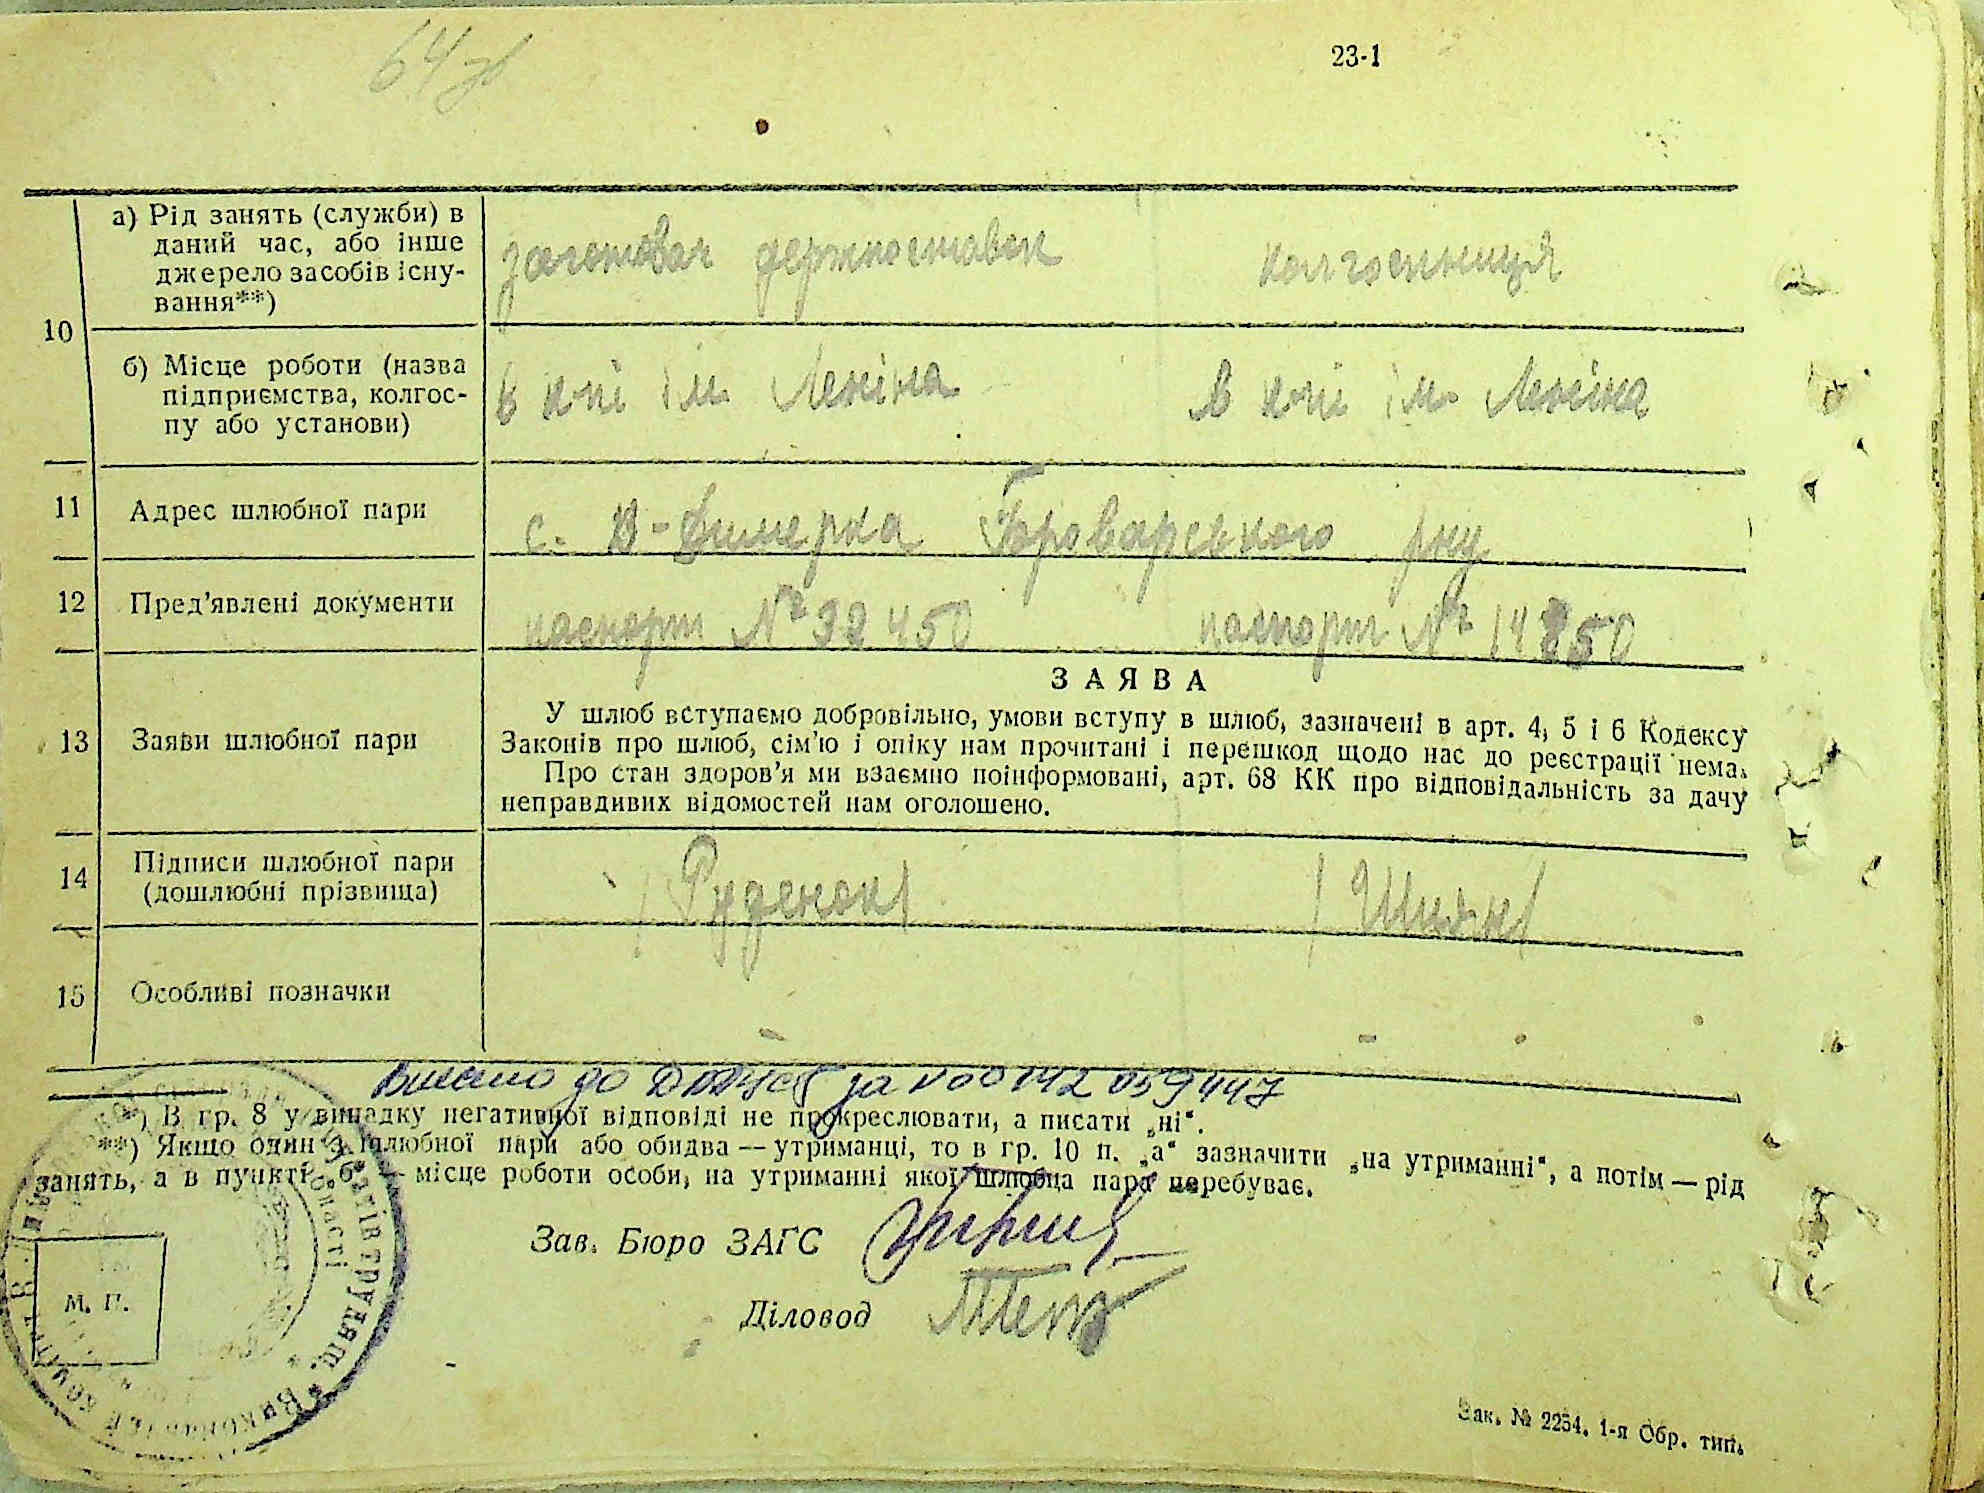 64 зв
23-1
10
а) Рід занять (служби) в
даний час, або інше
джерело засобів існу-
вання**)
держпоставок
колгоспниця
б) Місце роботи (назва
підприємства, колгос-
пу або установи)
в к-пі ім. Леніна
в к-пі ім. Леніна
11
Адрес шлюбної пари
с. В-Димерка Броварського р-ну
12
Пред'явлені документи
паспорт № 32450
паспорт №
13
Заяви шлюбної пари
ЗАЯВА
У шлюб вступаємо добровільно, умови вступу в шлюб, зазначені в арт. 4, 5 і 6 Кодексу
Законів про шлюб, сім'ю і опіку нам прочитані і перешкод щодо нас до реєстрації нема.
Про стан здоров'я ми взаємно поінформовані, арт. 68 КК про відповідальність за дачу
неправдивих відомостей нам оголошено.
14
Підписи шлюбної пари
(дошлюбні прізвища)
/Руденок/
15
Особливі позначки
до за 00142059447
*) В гр. 8 у випадку негативної відповіді не прокреслювати, а писати „ні“.
**) Якщо один з шлюбної пари або обидва — утриманці, то в гр. 10 п. „а“ зазначити „на утриманні“, а потім — рід
занять, а в пункті „б“ — місце роботи особи, на утриманні якої шлюбна пара перебуває.
Зав. Бюро ЗАГС
Діловод
М. П.
Зак. № 2254. 1-я Обр. тип.